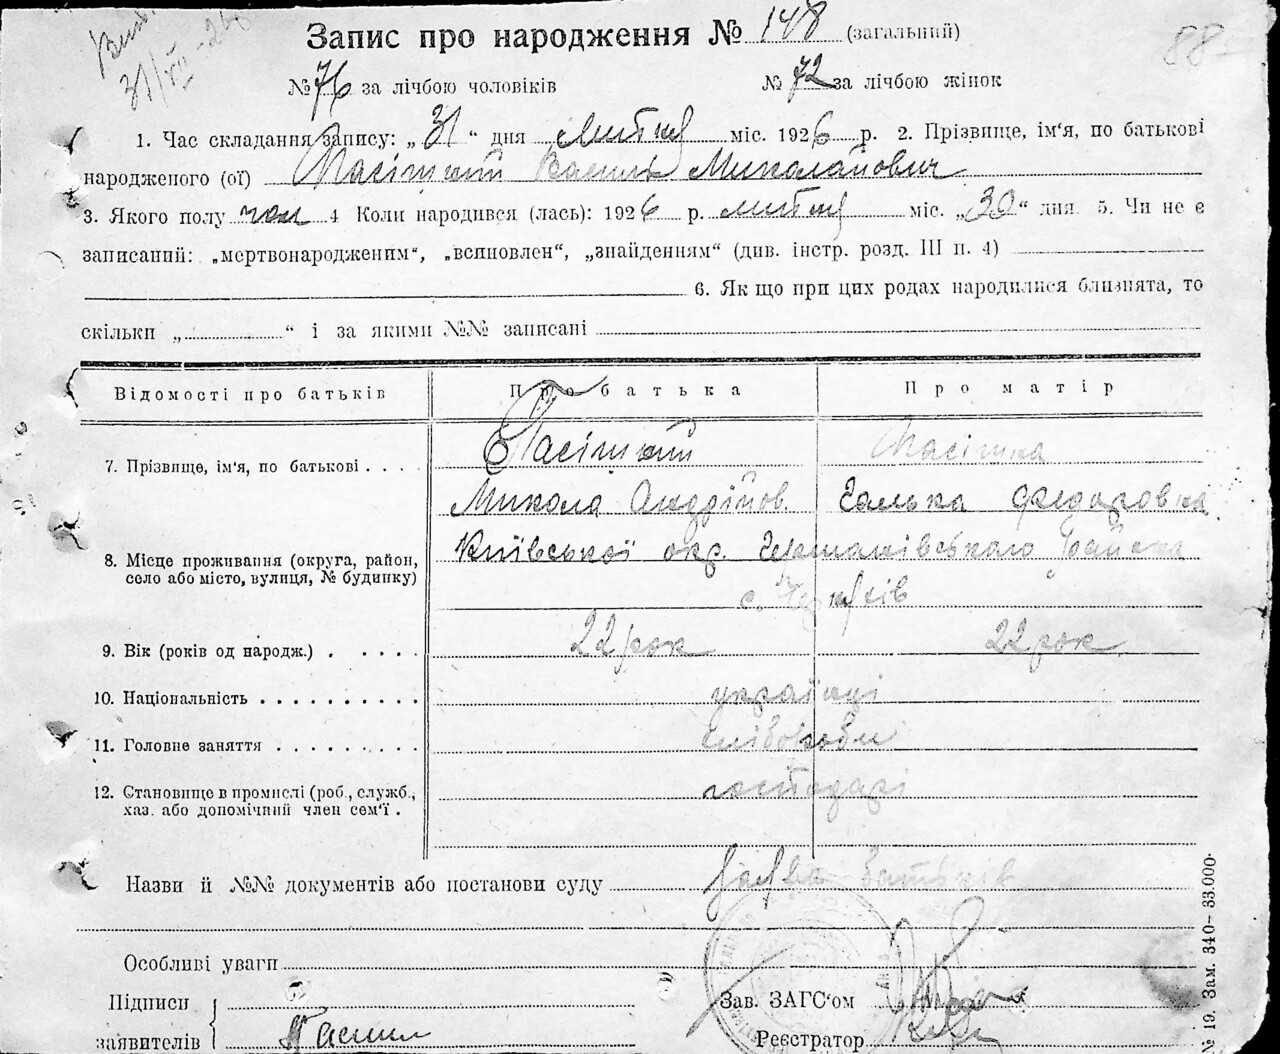 Запис про народження № 148 (загальний)
88
31/VII-26
№ 76 за лічбою чоловіків № 72 за лічбою жінок
1. Час складання запису: „ 31 “ дня липня міс. 1926 р. 2. Прізвище, ім‘я, по батькові
народженого (ої) Василь Миколайович
3. Якого полу чол 4 Коли народився (лась): 1926 р. липня міс. „30“ дня 5. Чи не є
записаний: „мертвонародженим“, „всиновлен“, „знайденням“ (див. інстр. розд. III п. 4)
6. Як що при цих родах народилися близнята, то
скільки „ “ і за якими №№ записані
Відомості про батьків Про батька Про матір
7. Прізвище, ім‘я, по батькові
Микола Андрійов. Галька Федоровна
8. Місце проживання (округа, район, село або місто, вулиця, № будинку) Київської окр. Германівського района
с.
9. Вік (років од народж.) 22 рок 22 рок
10. Національність українці
11. Головне заняття хлібороби
12. Становище в промислі (роб., служб., хаз. або допомічний член сем‘ї. господарі
Назви й №№ документів або постанови суду заява батьків
Особливі уваги
Підписи Зав. ЗАГС‘ом
заявителів Реєстратор
№ 19. Зам. 340– 33.000.